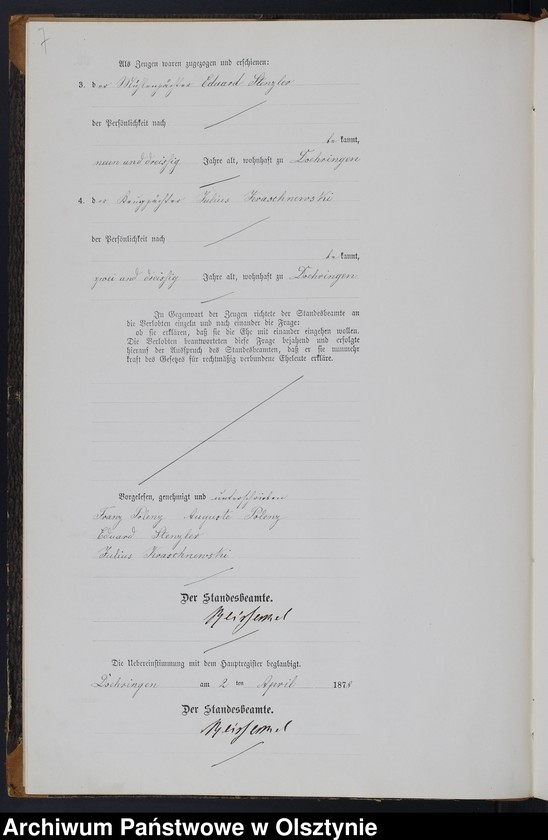 7
Als Zeugen waren zugezogen und erschienen:
3. der Mühlenpächter Eduard Stenzler
der Persönlichkeit nach
be kannt,
neun und dreissig Jahre alt, wohnhaft zu Döhringen
4. der Krugpächter Julius Kraschnewski
der Persönlichkeit nach
be kannt,
zwei und dreissig Jahre alt, wohnhaft zu Döhringen
In Gegenwart der Zeugen richtete der Standesbeamte an
die Verlobten einzeln und nach einander die Frage:
ob sie erklären, daß sie die Ehe mit einander eingehen wollen.
Die Verlobten beantworteten diese Frage bejahend und erfolgte
hierauf der Ausspruch des Standesbeamten, daß er sie nunmehr
kraft des Gesetzes für rechtmäßig verbundene Eheleute erkläre.
Vorgelesen, genehmigt und unterschrieben
Franz Polenz Auguste Polenz
Eduard Stenzler
Julius Kraschnewski
Der Standesbeamte.
Die Uebereinstimmung mit dem Hauptregister beglaubigt.
Döhringen am 2 ten April 1878
Der Standesbeamte.
Archiwum Państwowe w Olsztynie